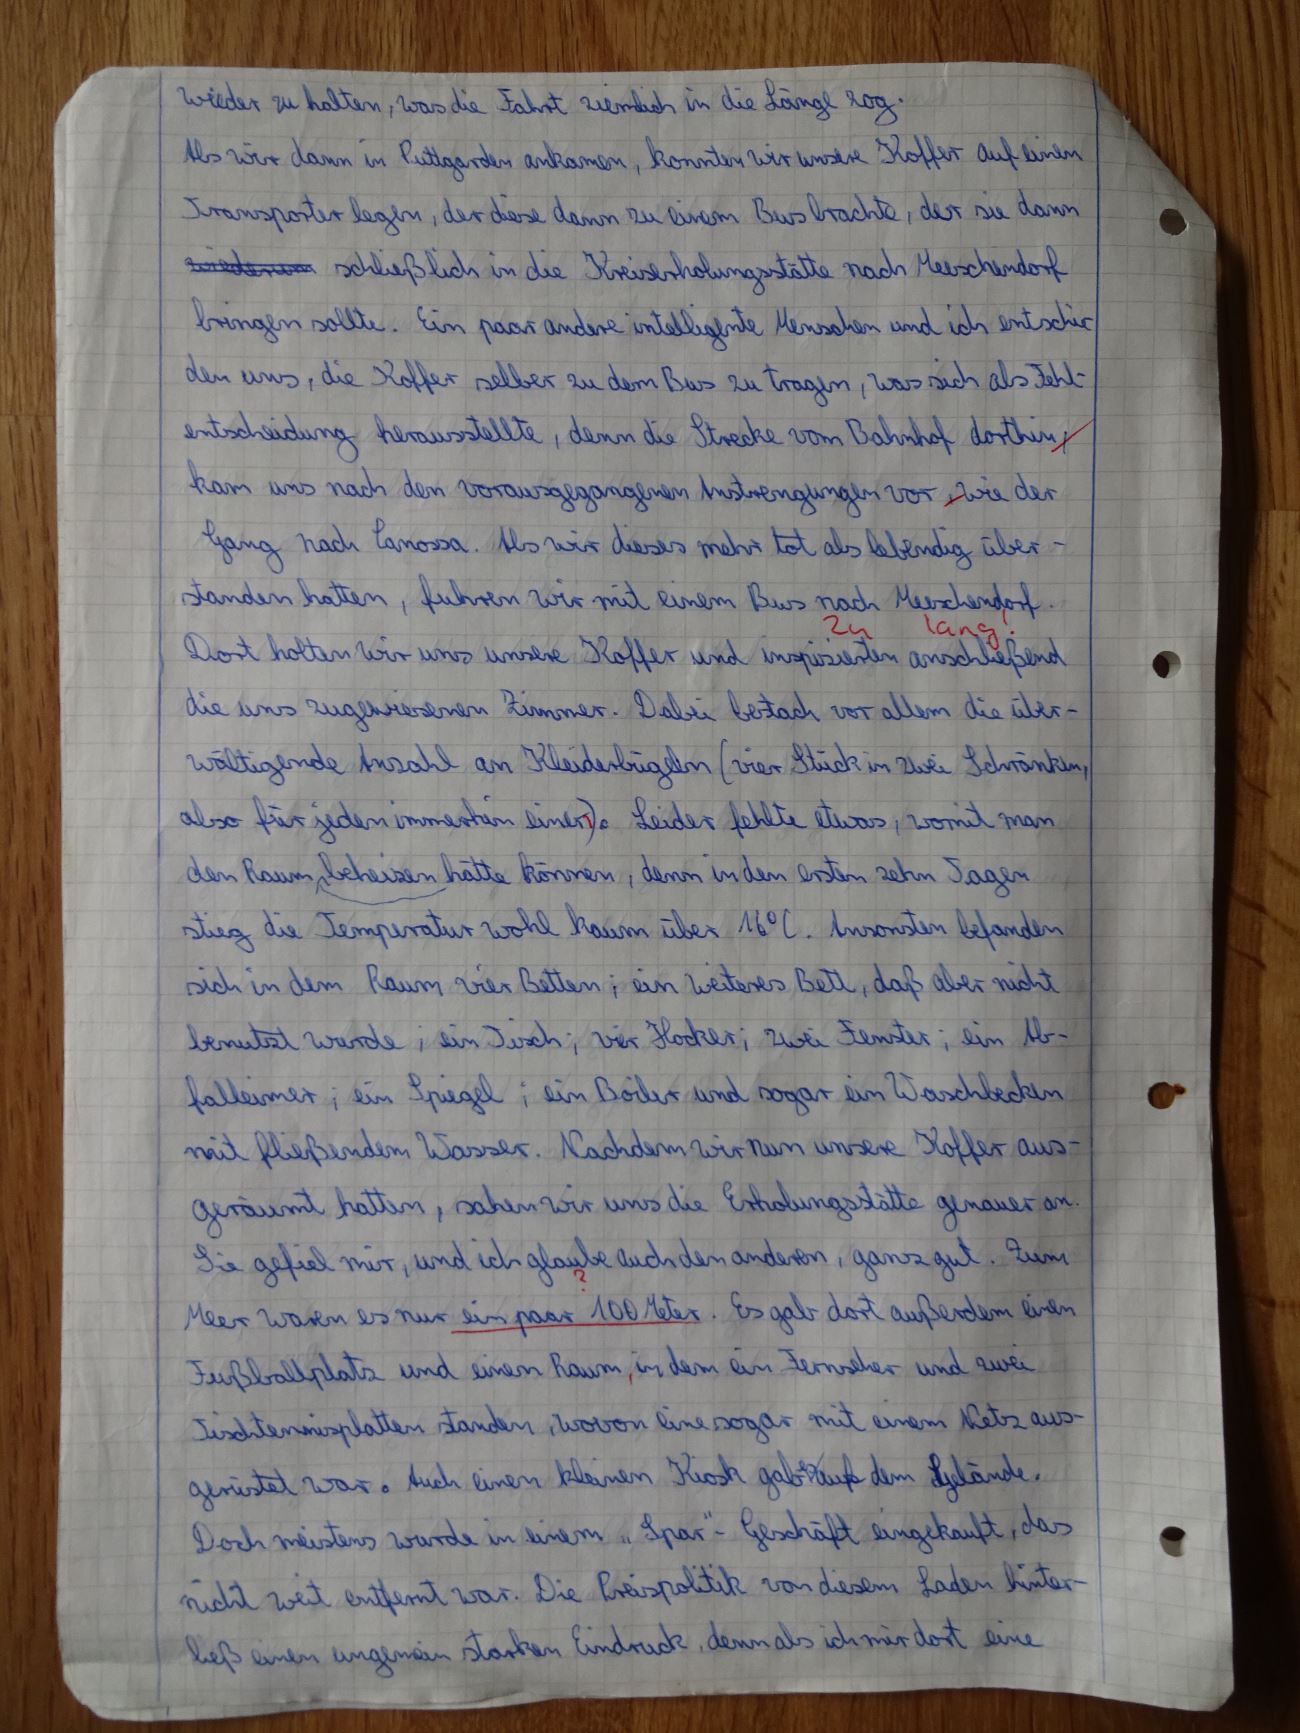 wieder zu halten, was die Fahrt ziemlich in die Länge zog.
Als wir dann in Puttgarden ankamen, konnten wir unsere Koffer auf einen
Transporter legen, der diese dann zu einem Bus brachte, der sie dann
wiederum schließlich in die Kreiserholungsstätte nach Meeschendorf
bringen sollte. Ein paar andere intelligente Menschen und ich entschie
den uns, die Koffer selber zu dem Bus zu tragen, was sich als Fehl-
entscheidung herausstellte, denn die Strecke vom Bahnhof dorthin,
kam uns nach den vorausgegangenen Anstrengungen vor, wie der
Gang nach Canossa. Als wir dieses mehr tot als lebendig über-
standen hatten, fuhren wir mit einem Bus nach Meeschendorf.
zu lang!
Dort holten wir uns unsere Koffer und inspizierten anschließend
die uns zugewiesenen Zimmer. Dabei bestach vor allem die über-
wältigende Anzahl an Kleiderbügeln (vier Stück in zwei Schränken,
also für jeden immerhin einer). Leider fehlte etwas, womit man
den Raum beheizen hätte können, denn in den ersten zehn Tagen
stieg die Temperatur wohl kaum über 16°C. Ansonsten befanden
sich in dem Raum vier Betten; ein weiteres Bett, daß aber nicht
benutzt wurde; ein Tisch; vier Hocker; zwei Fenster; ein Ab-
falleimer; ein Spiegel; ein Boiler und sogar ein Waschbecken
mit fließendem Wasser. Nachdem wir nun unsere Koffer aus-
geräumt hatten, sahen wir uns die Erholungsstätte genauer an.
Sie gefiel mir, und ich glaube auch den anderen, ganz gut. Zum
?
Meer waren es nur ein paar 100 Meter. Es gab dort außerdem einen
Fußballplatz und einen Raum, in dem ein Fernseher und zwei
Tischtennisplatten standen, wovon eine sogar mit einem Netz aus-
gerüstet war. Auch einen kleinen Kiosk gab es auf dem Gelände.
Doch meistens wurde in einem „Spar"-Geschäft eingekauft, das
nicht weit entfernt war. Die Preispolitik von diesem Laden hinter-
ließ einen ungemein starken Eindruck, denn als ich mir dort eine